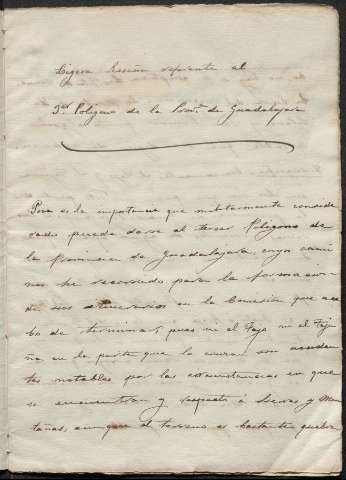 Ligera Reseña referente al
3er Poligono de la Provª de Guadalajara
Poca es la importancia que militarmente conside
rado puede darse al tercer Poligono de
la Provincia de Guadalajara, cuyos cami
nos he recorrido para la formacion
de sus itinerarios en la Comision que aca
bo de terminar, pues ni el Tajo ni el Taju
ña en la parte que la cruzan son acciden
tes notables por las circunstancias en que
se encuentran y respecto á Sierras y Mon
tañas, aunque el terreno es bastante quebra